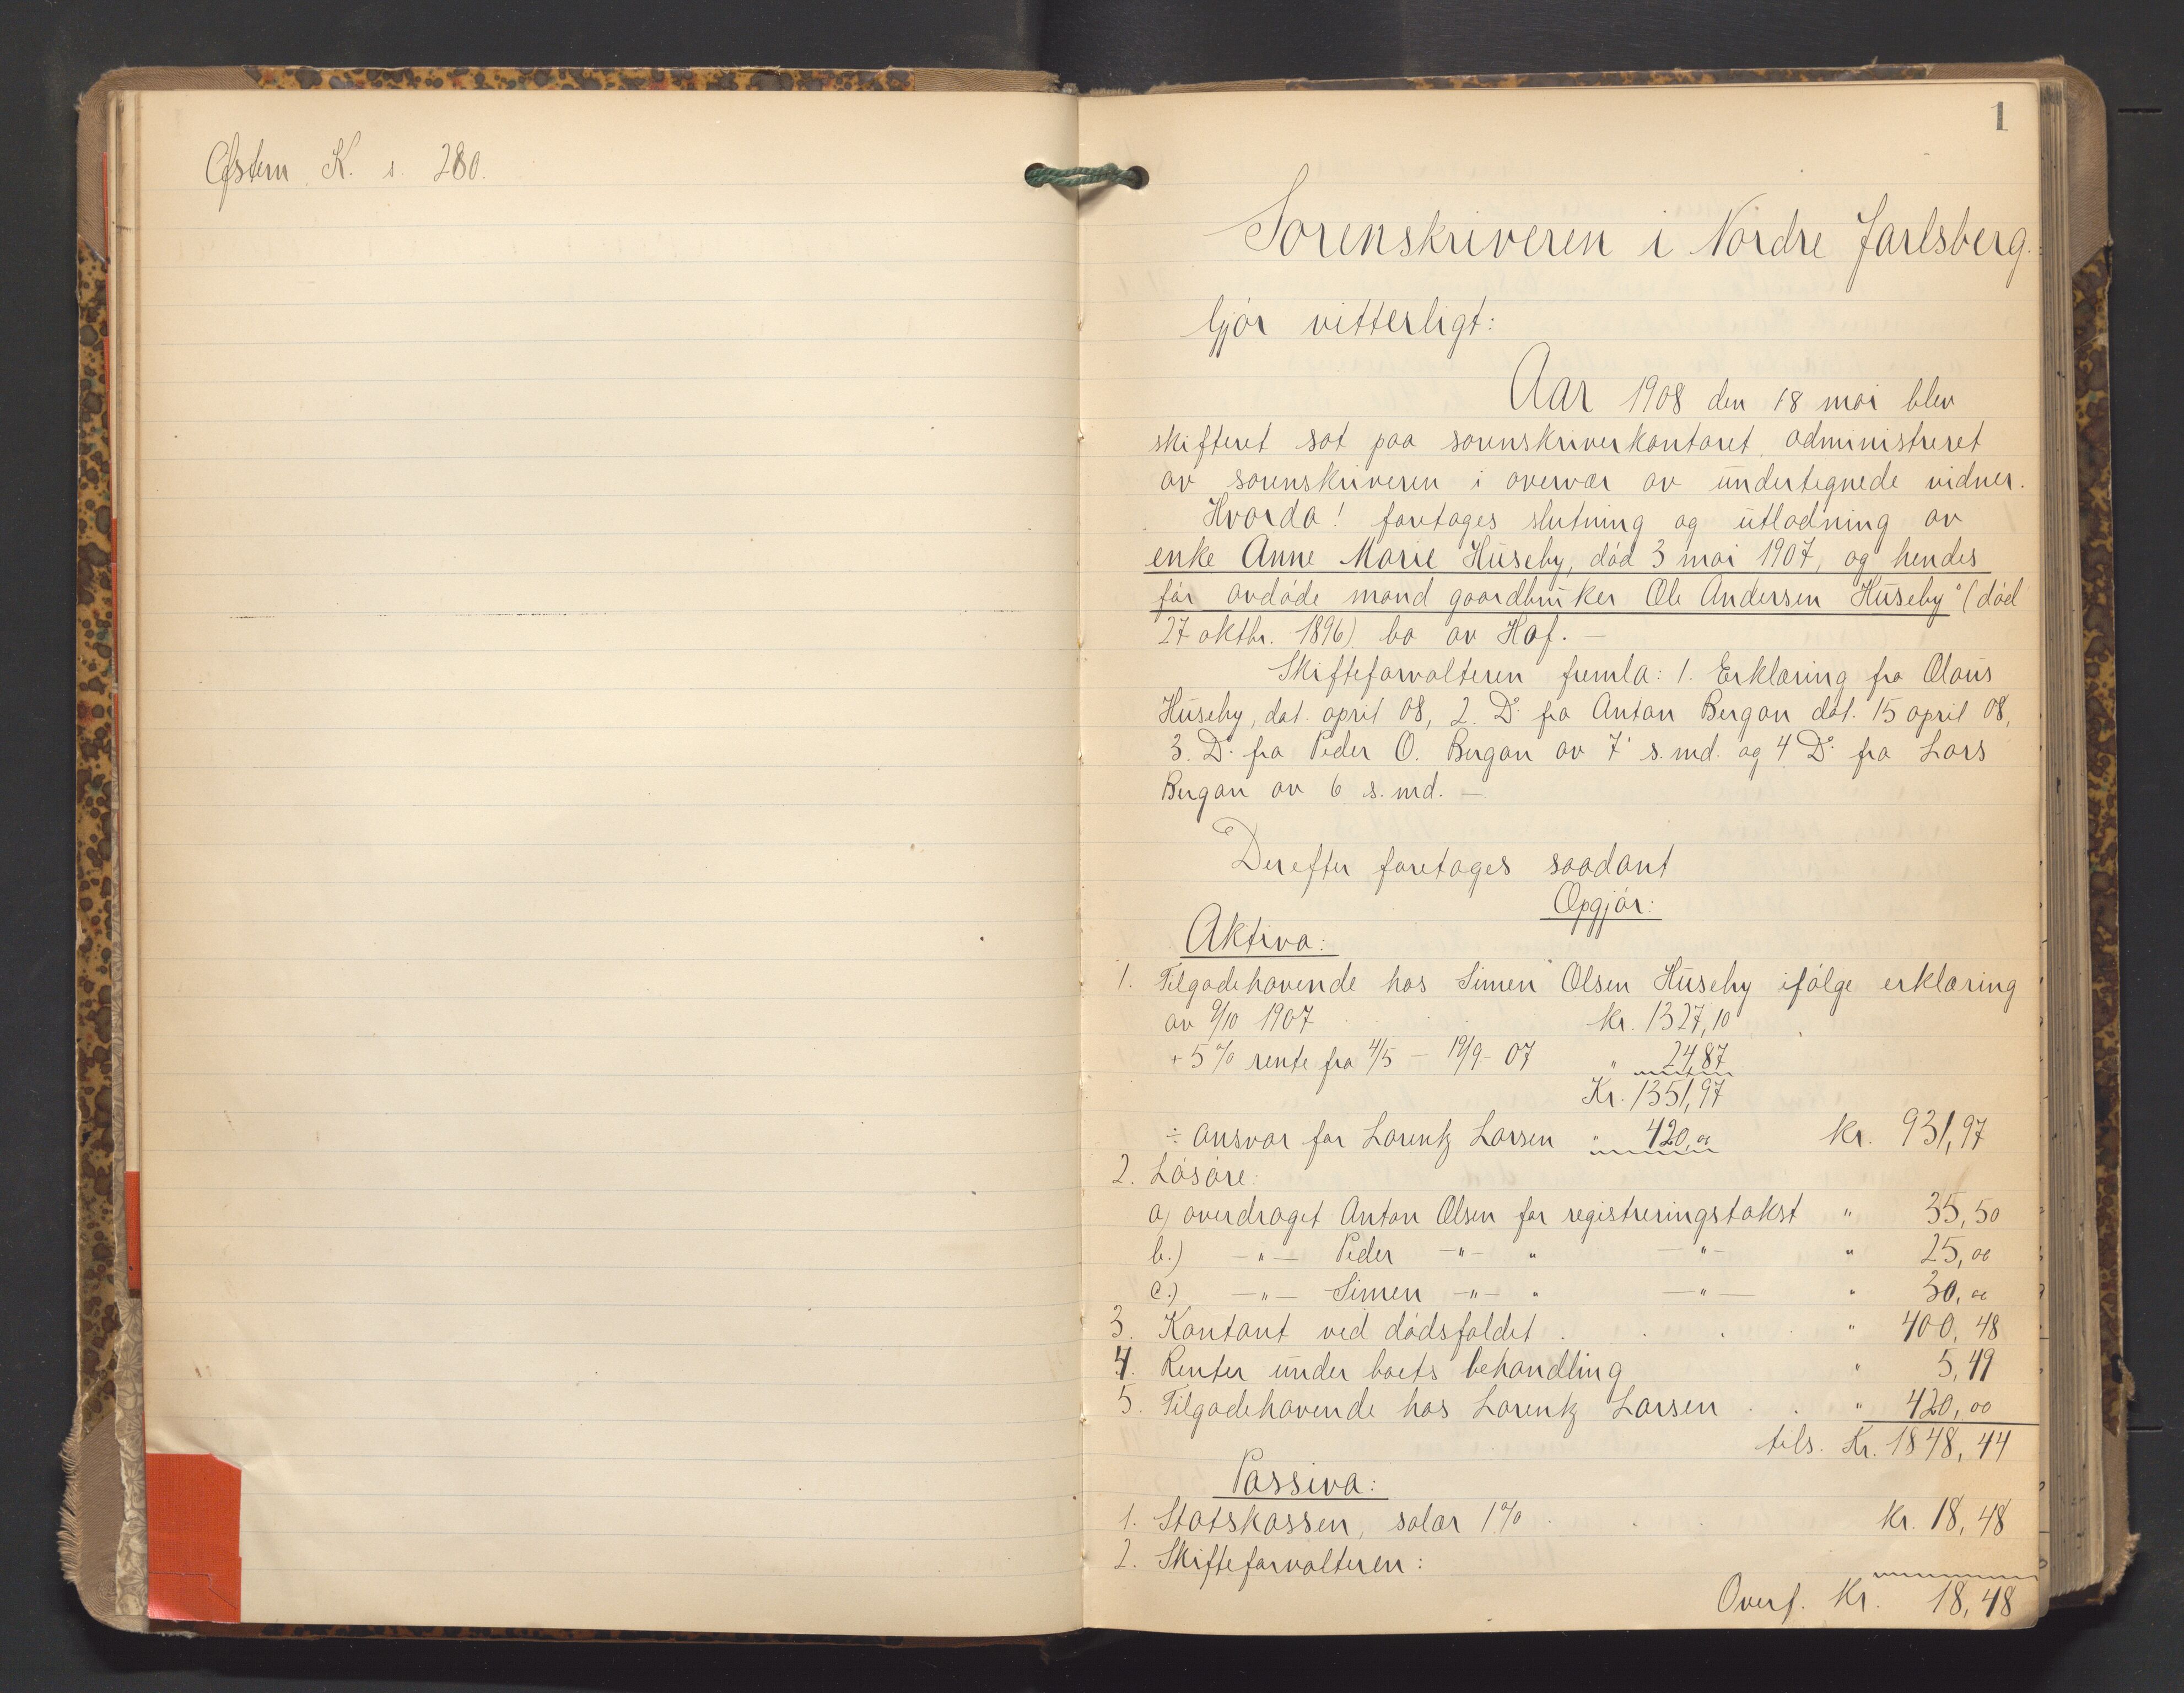 Østern K. s. 280.
1
Sorenskriveren i Nordre Jarlsberg.
Gjør vitterligt:
Aar 1908 den 18 mai blev
skifteret sat paa sorenskriverkontoret administreret
av sorenskriveren i overvær av undertegnede vidner.
Hvorda! foretages slutning og utlodning av
enke Anne Marie Huseby, død 3 mai 1907, og hendes
før avdøde mand gaardbruker Ole Andersen Huseby's (død
27 oktbr. 1896) bo av Hof. —
Skifteforvalteren fremla: 1. Erklæring fra Olaus
Huseby, dat. april 08, 2. Do fra Anton Bergan dat. 15 april 08,
3. Do fra Peder O. Bergan av 7' s. md. og 4 Do fra Lars
Bergan av 6 s. md. —
Derefter foretages saadant
Opgjør:
Aktiva:
1. Tilgodehavende hos Simen Olsen Huseby ifølge erklæring
av 9/10 1907 kr. 1327,10
+ 5 % rente fra 4/5 – 19/9 - 07 " 24,87
Kr. 1351,97
÷ ansvar for Lorentz Larsen " 420,00 kr. 931,97
2. Løsøre:
a) overdraget Anton Olsen for registreringstakst " 35,50
b.) —"— Peder —"— " —"— " 25,00
c.) —"— Simen —"— " —"— " 30,00
3. Kontant ved dødsfaldet . . . . " 400,48
4. Renter under boets behandling " 5,49
5. Tilgodehavende hos Lorentz Larsen . . " 420,00
tils. Kr. 1848,44
Passiva:
1. Statskassen, salær 1% . . . kr. 18,48
2. Skifteforvalteren:
Overf. Kr. 18,48